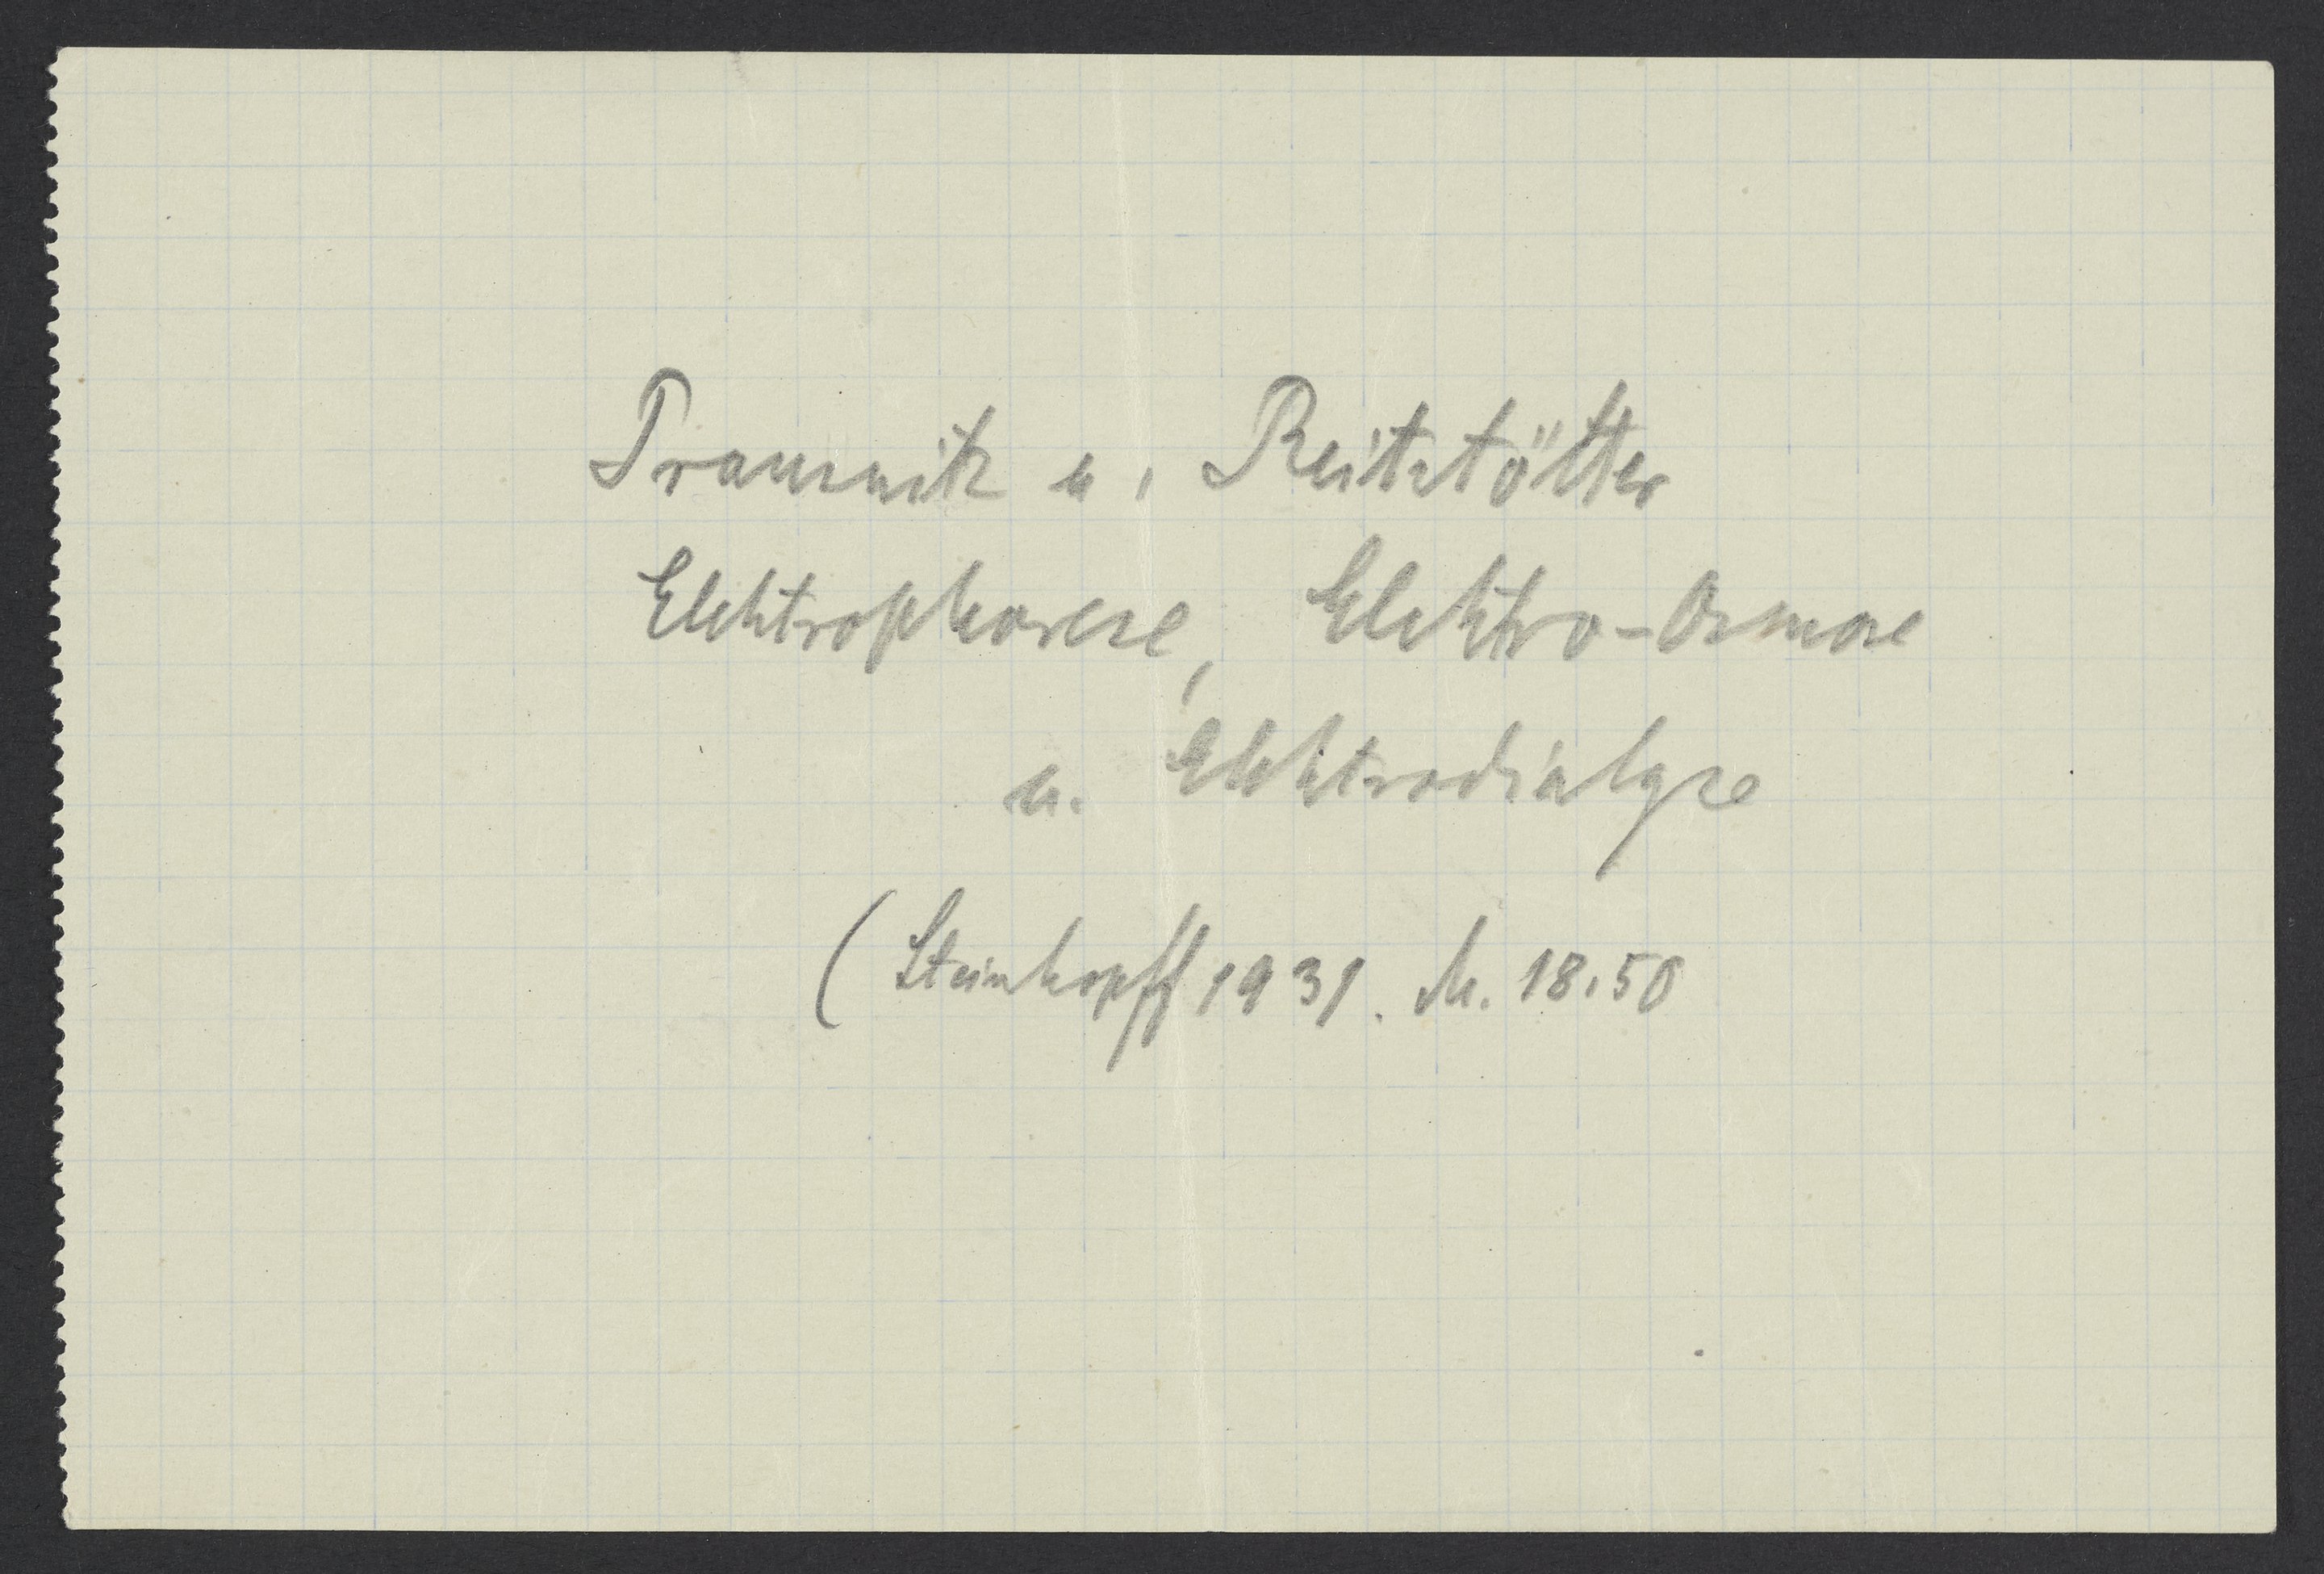 Prausnitz u. Reitstötter
Elektrophorese, Elektro-Osmose
u. Elektrodialyse
(Steinkopff 1931. M. 18.50